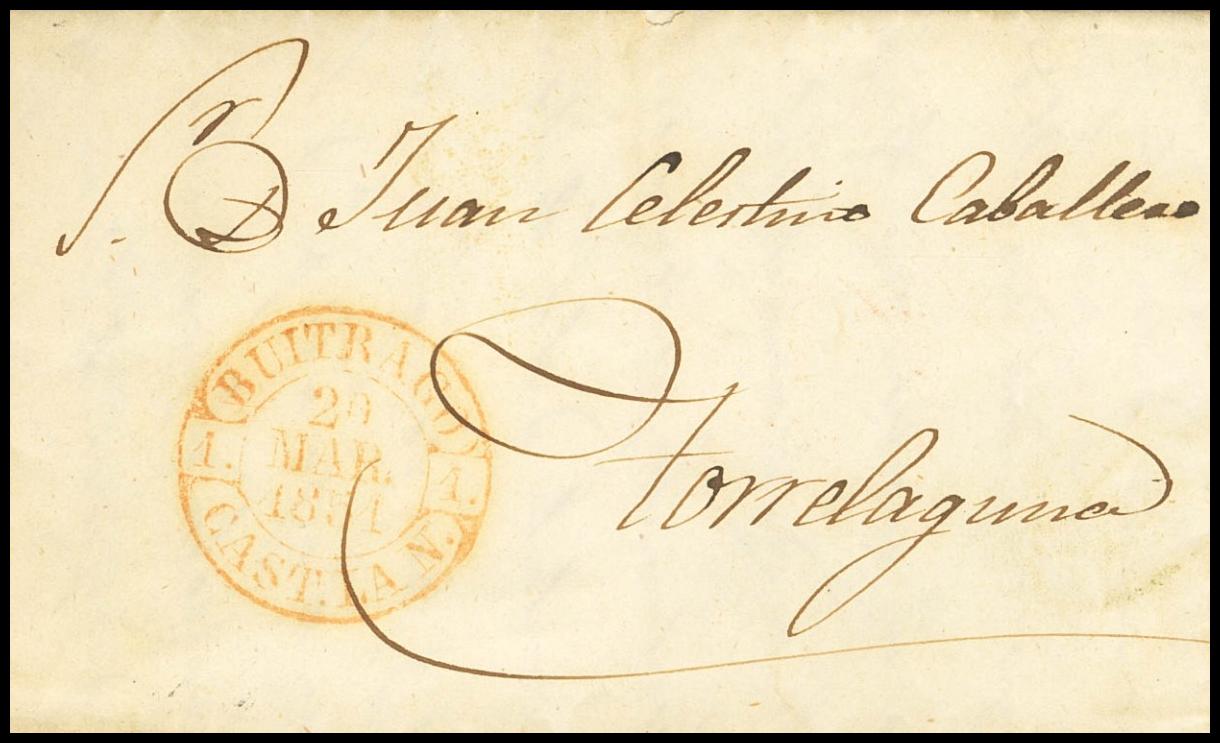 Sr. D. Juan Celestino Caballero
BUITRAGO
29
MAR.
1851
1. 1.
CAST. LA N.
Torrelaguna